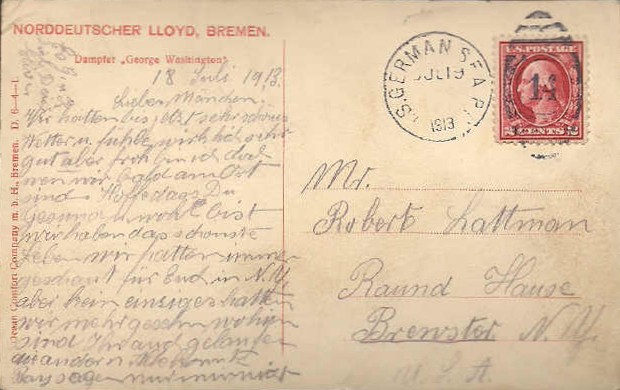 NORDDEUTSCHER LLOYD, BREMEN.
Dampfer „George Washington"
18 Juli 1913.
Liebes Mänchen.
Wir hatten bis jetzt sehr schönes
Wetter u. fühle mich sehr
gut aber froh bin ich doch
wen wir bald am Ort
sind. Hoffe das Du
Gesund u. wohl bist
wir haben das schönste
Leben wir hatten immer
geschaut für Euch in N.Y.
aber kein einziger hatten
wir mehr gesehn wohin
sind Ihr all gelaufen
die andern
sagen
Ocean Comfort Company m. b. H., Bremen. D. 6—4—1.
U.S. GERMAN SEA P.
JUL 19
1913
U.S. POSTAGE
14
2 CENTS 2
Mr.
Robert Lattman
Raund Hause
Brewster N. Y.
U. S. A.